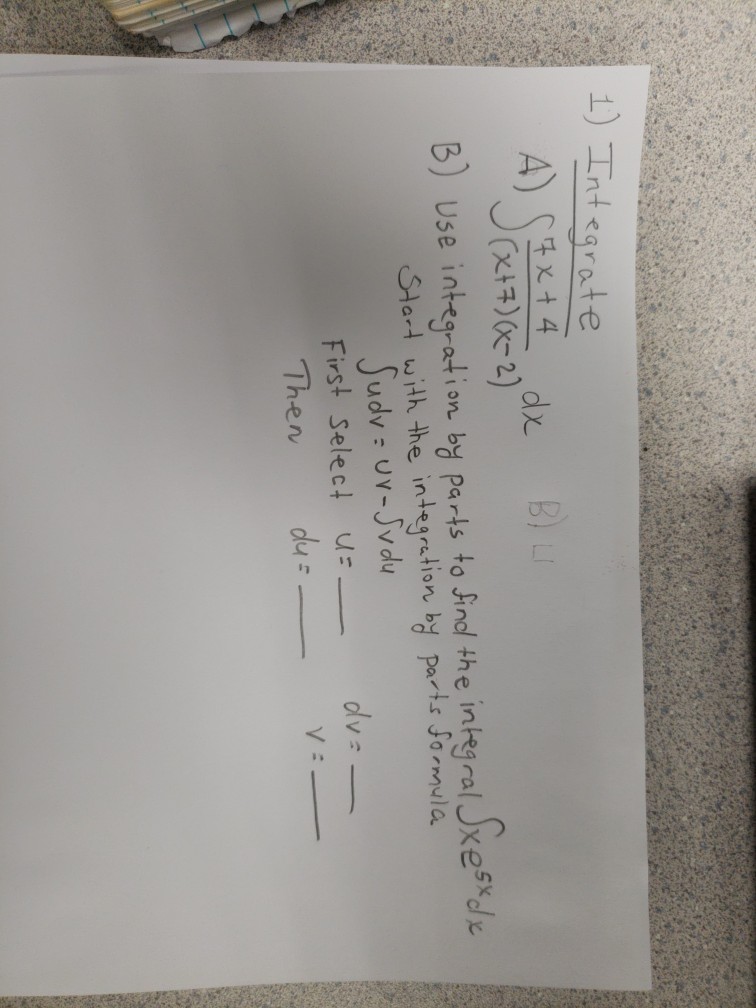 1) Integrate
A) ∫ 7x+4 / (x+7)(x-2) dx B) U
B) Use integration by parts to find the integral ∫xe^5x dx
Start with the integration by parts formula
∫udv = uv-∫vdu
First Select u= __ dv= __
Then du= __ v= __